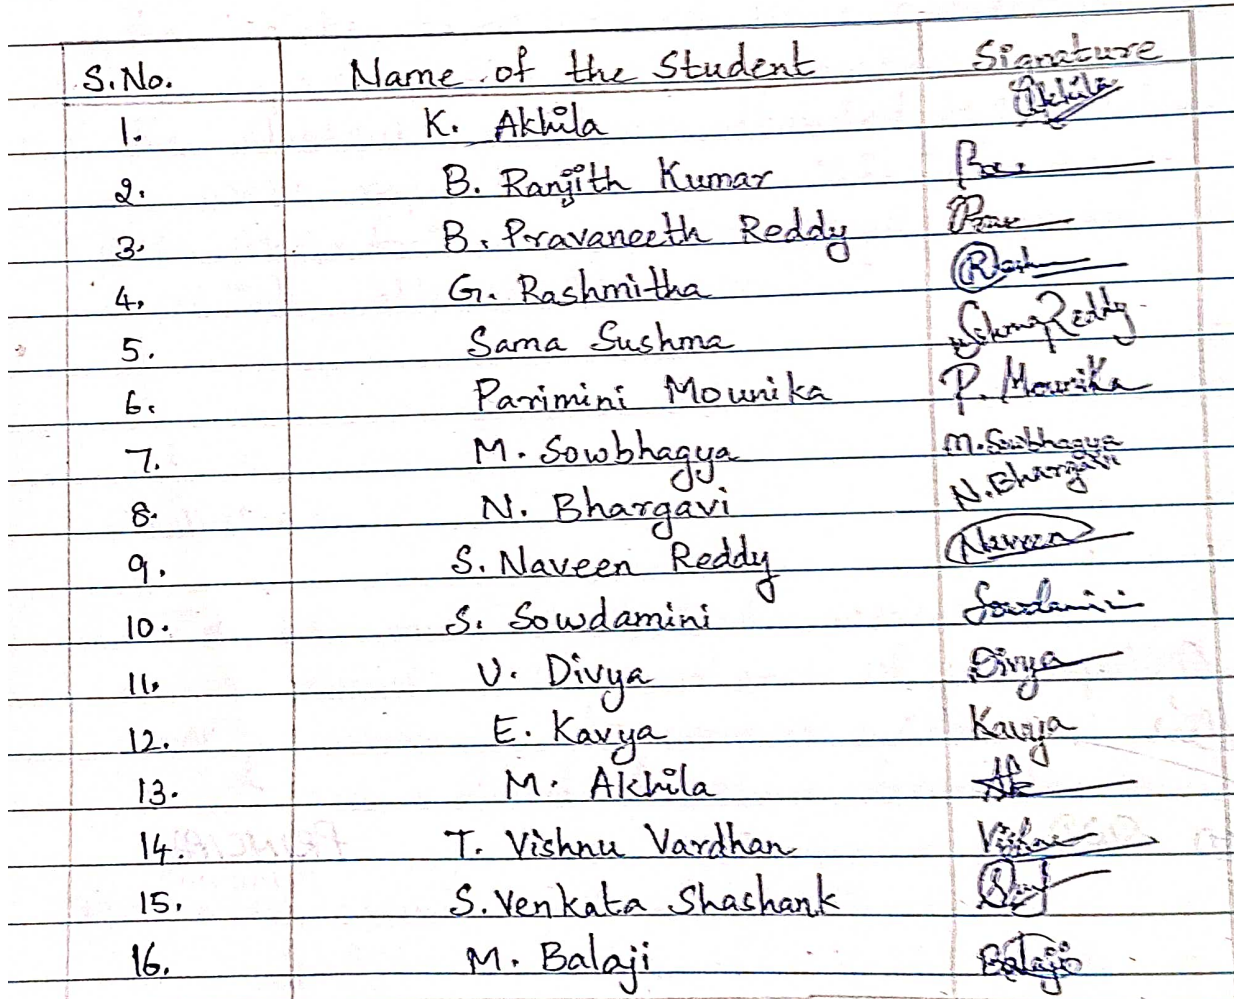 S.No. Name of the Student Signature
1. K. Akhila Akhila
2. B. Ranjith Kumar
3. B. Pravaneeth Reddy
4. G. Rashmitha
5. Sama Sushma Reddy
6. Parimini Mounika P. Mounika
7. M. Sowbhagya M. Sowbhagya
8. N. Bhargavi N. Bhargavi
9. S. Naveen Reddy Naveen
10. S. Sowdamini Sowdamini
11. V. Divya Divya
12. E. Kavya Kavya
13. M. Akhila
14. T. Vishnu Vardhan
15. S. Venkata Shashank
16. M. Balaji Balaji